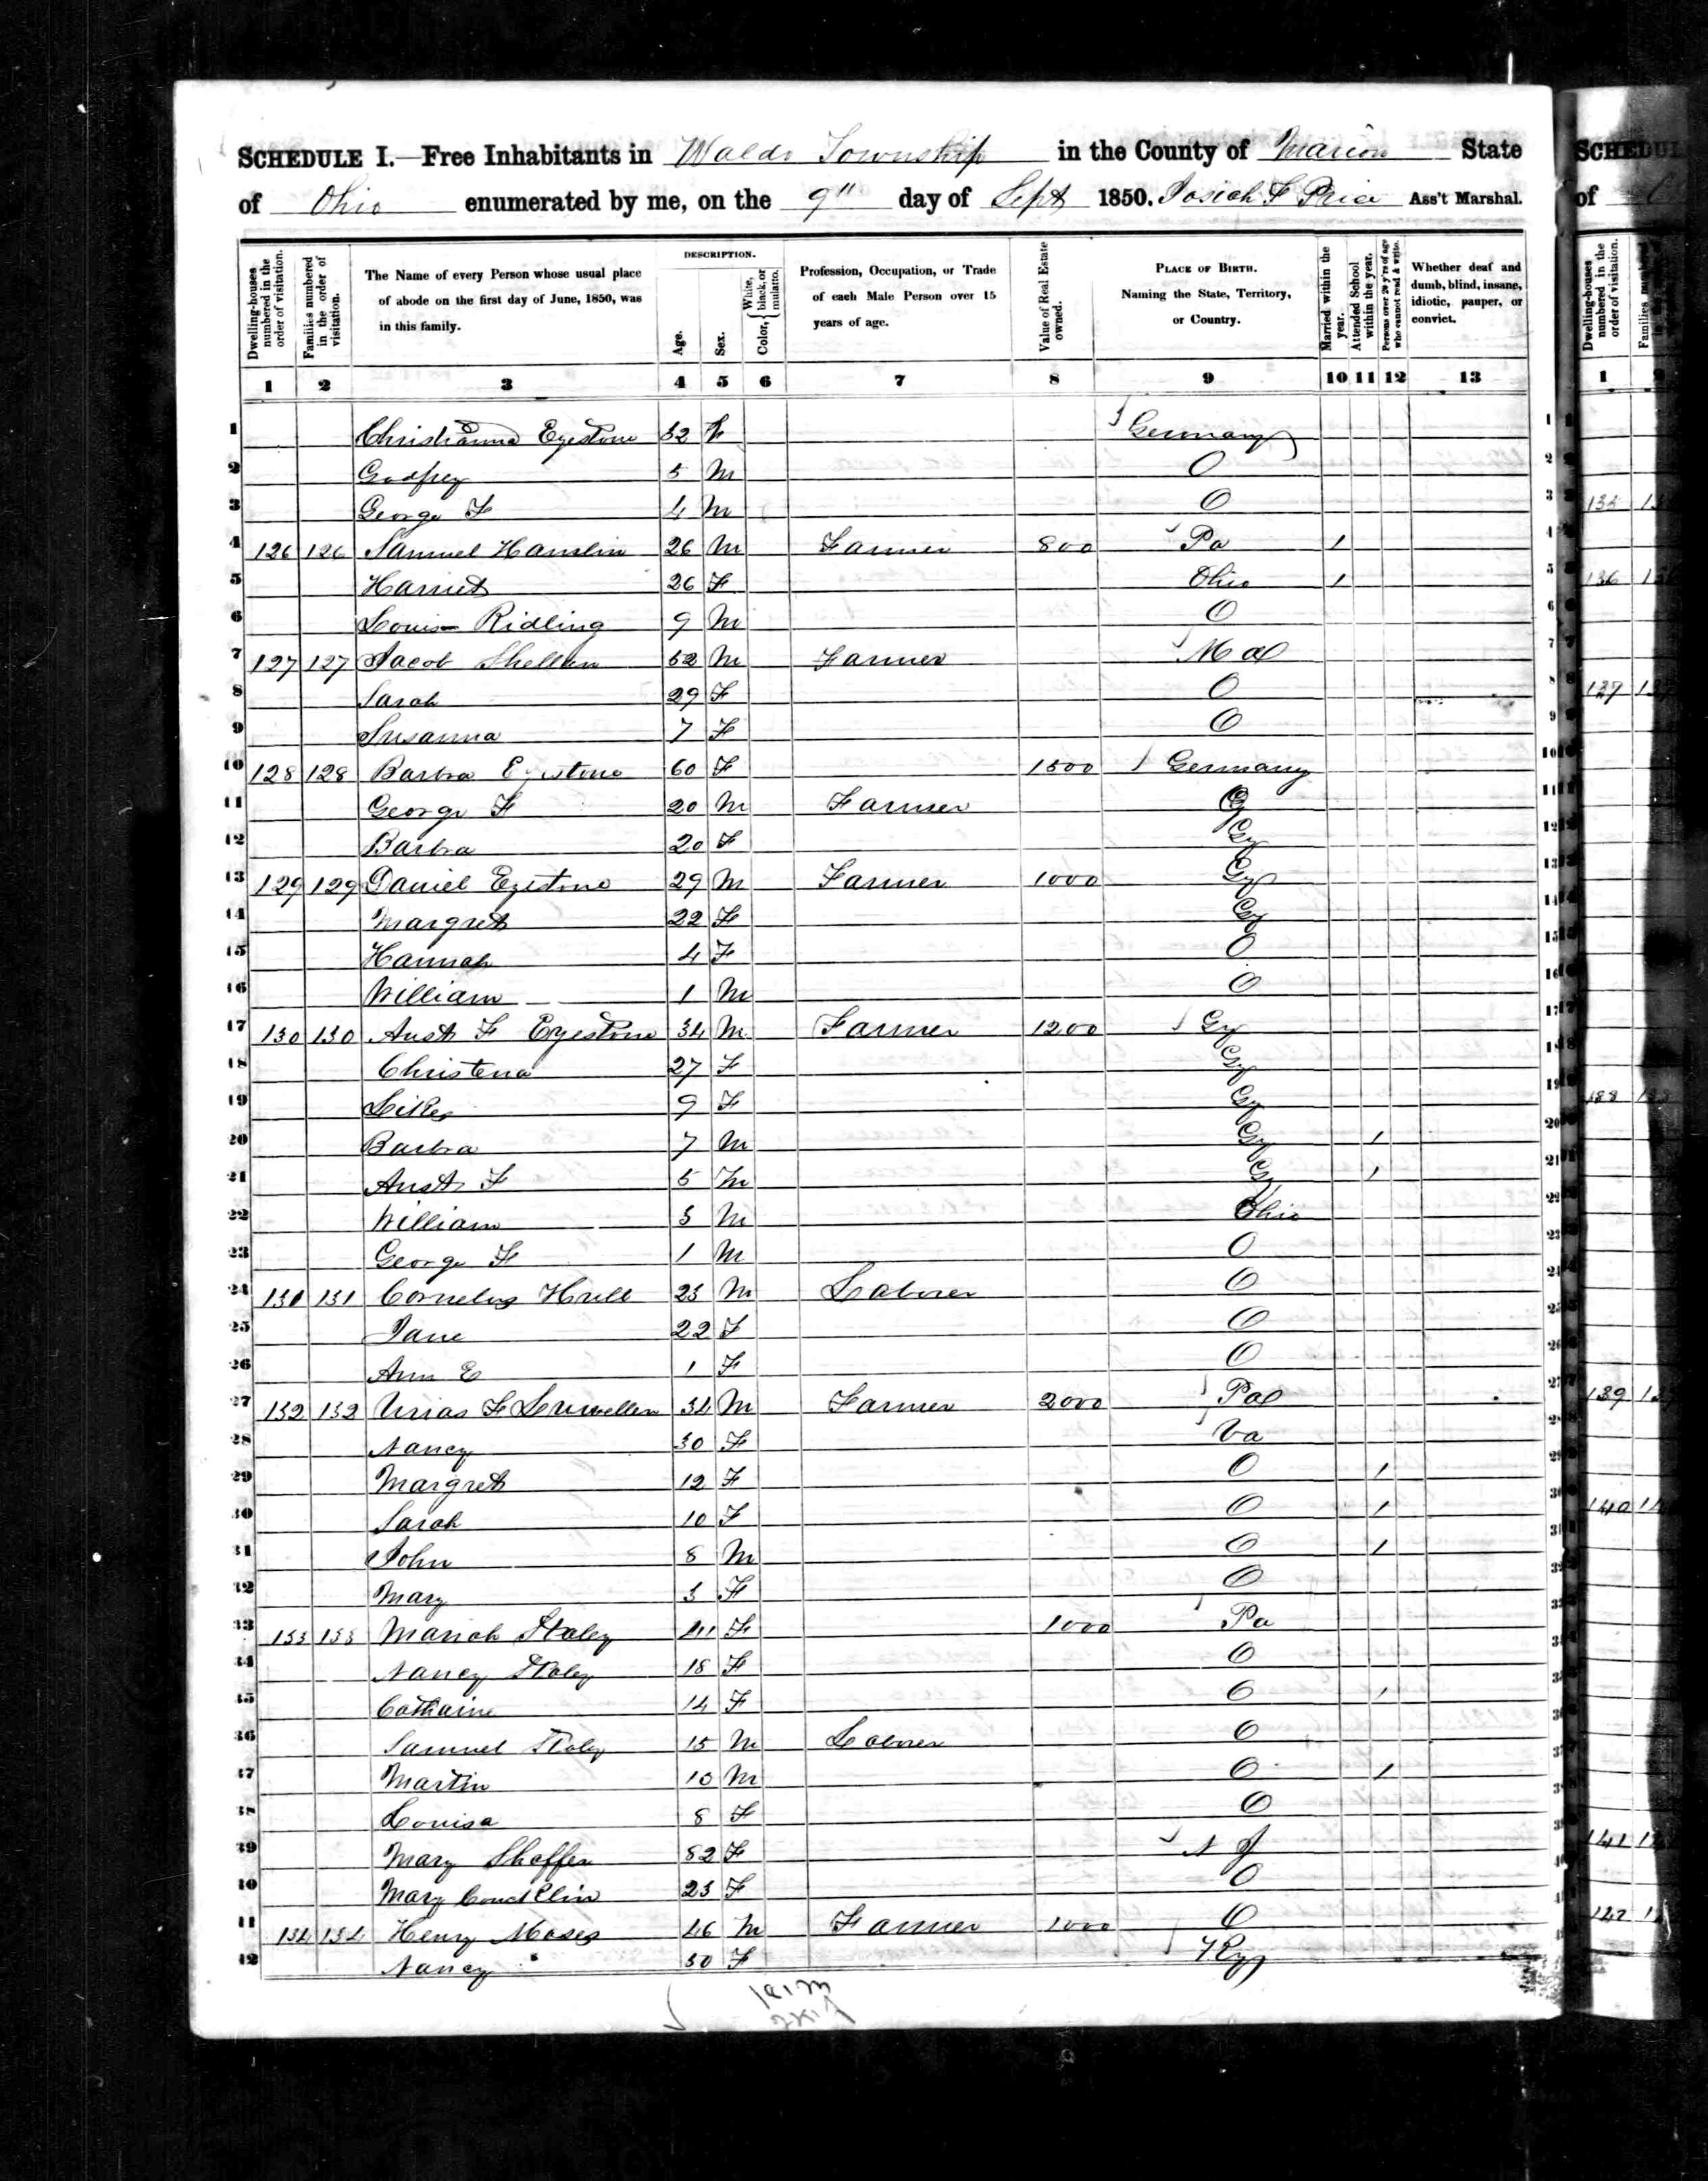 SCHEDULE I.—Free Inhabitants in Waldo Township in the County of Marion State
of Ohio enumerated by me, on the 9" day of Sept 1850. Josiah F Price Ass't Marshal.
Dwelling-houses numbered in the order of visitation.
Families numbered in the order of visitation.
The Name of every Person whose usual place of abode on the first day of June, 1850, was in this family.
DESCRIPTION.
Age.
Sex.
Color, { White, black, or mulatto.
Profession, Occupation, or Trade of each Male Person over 15 years of age.
Value of Real Estate owned.
PLACE OF BIRTH. Naming the State, Territory, or Country.
Married within the year.
Attended School within the year.
Persons over 20 y'rs of age who cannot read & write.
Whether deaf and dumb, blind, insane, idiotic, pauper, or convict.
1 2 3 4 5 6 7 8 9 10 11 12 13
1 Christianna Eyestone 32 F Germany
2 Godfrey 5 M O
3 George F 4 M O
4 126 126 Samuel Hamlin 26 M Farmer 800 Pa 1
5 Harriet 26 F Ohio 1
6 Louis Ridling 9 M O
7 127 127 Jacob 52 M Farmer Md
8 Sarah 29 F O
9 Susanna 7 F O
10 128 128 Barbra Eyestone 60 F 1500 Germany
11 George F 20 M Farmer G
12 Barbra 20 F Gy
13 129 129 Daniel Eyestone 29 M Farmer 1000 Gy
14 Margret 22 F Gy
15 Hannah 4 F O
16 William 1 M O
17 130 130 Aust F Eyestone 34 M Farmer 1200 Gy
18 Christena 27 F Gy
19 9 F Gy
20 Barbra 7 M Gy 1
21 Aust F 5 M Gy 1
22 William 3 M Ohio
23 George F 1 M O
24 131 131 Cornelus Hull 23 M Laborer O
25 Jane 22 F O
26 Ann E 1 F O
27 132 132 Urias F Lewellen 34 M Farmer 2000 Pa
28 Nancy 30 F Va
29 Margret 12 F O 1
30 Sarah 10 F O 1
31 John 8 M O 1
32 Mary 3 F O
33 133 133 Mariah Staley 41 F 1000 Pa
34 Nancy Staley 18 F O
35 Catharine 14 F O 1
36 Samuel Staley 15 M Laborer O
37 Martin 10 M O 1
38 Louisa 8 F O
39 Mary Shaffer 82 F N J
40 Mary 23 F O
41 134 134 Henry Moses 46 M Farmer 1000 O
42 Nancy 50 F Ky